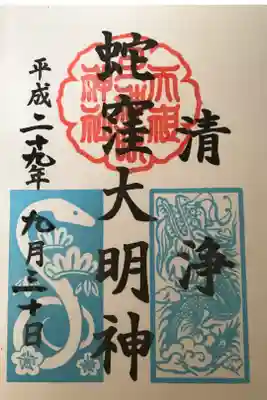 清浄
蛇窪大明神
天祖
神社
平成二十九年
九月三十日